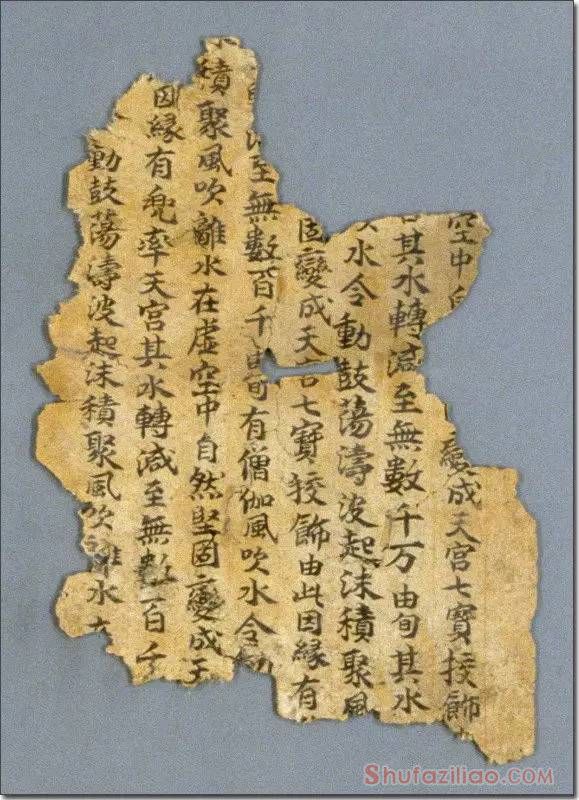 空中自變成天宮七寶挍飾
其水轉減至無數千万由旬其水
水令動鼓蕩濤波起沫積聚風
固變成天宮七寶挍飾由此因緣有
至無數百千由旬有僧伽風吹水令動
積聚風吹離水在虛空中自然堅固變成天
因緣有兜率天宮其水轉減至無數百千
動鼓蕩濤波起沫積聚風吹離水
Shufaziliao.com